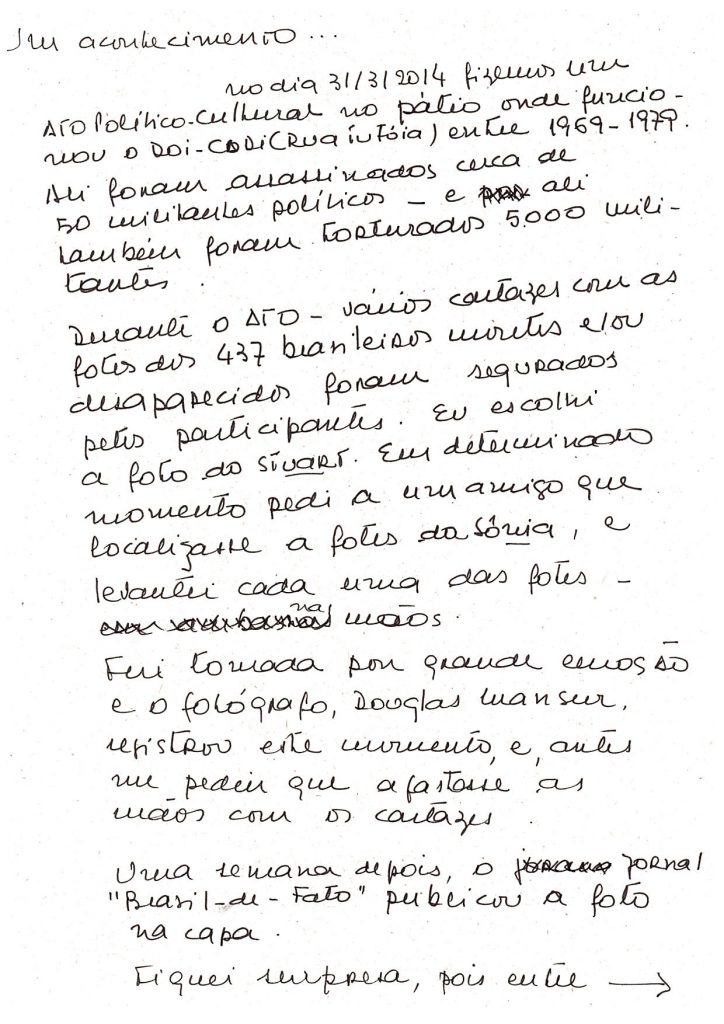 Um acontecimento...
no dia 31/3/2014 fizemos um
ATO Político-Cultural no pátio onde funcio-
nou o DOI-CODI (Rua Tutóia) entre 1969-1979.
Ali foram assassinados cerca de
50 militantes políticos - e ali
também foram torturados 5.000 mili-
tantes.
Durante o ATO - vários cartazes com as
fotos dos 437 brasileiros mortos e/ou
desaparecidos foram segurados
pelos participantes. Eu escolhi
a foto do STUART. Em determinado
momento pedi a um amigo que
localizasse a fotos da Sônia, e
levantei cada uma das fotos -
nas mãos.
Fui tomada por grande emoção
e o fotógrafo, Douglas Mansur,
registrou este momento, e, antes
me pediu que afastasse as
mãos com os cartazes.
Uma semana depois, o jornal
"Brasil-de-Fato" publicou a foto
na capa.
Fiquei surpresa, pois entre →